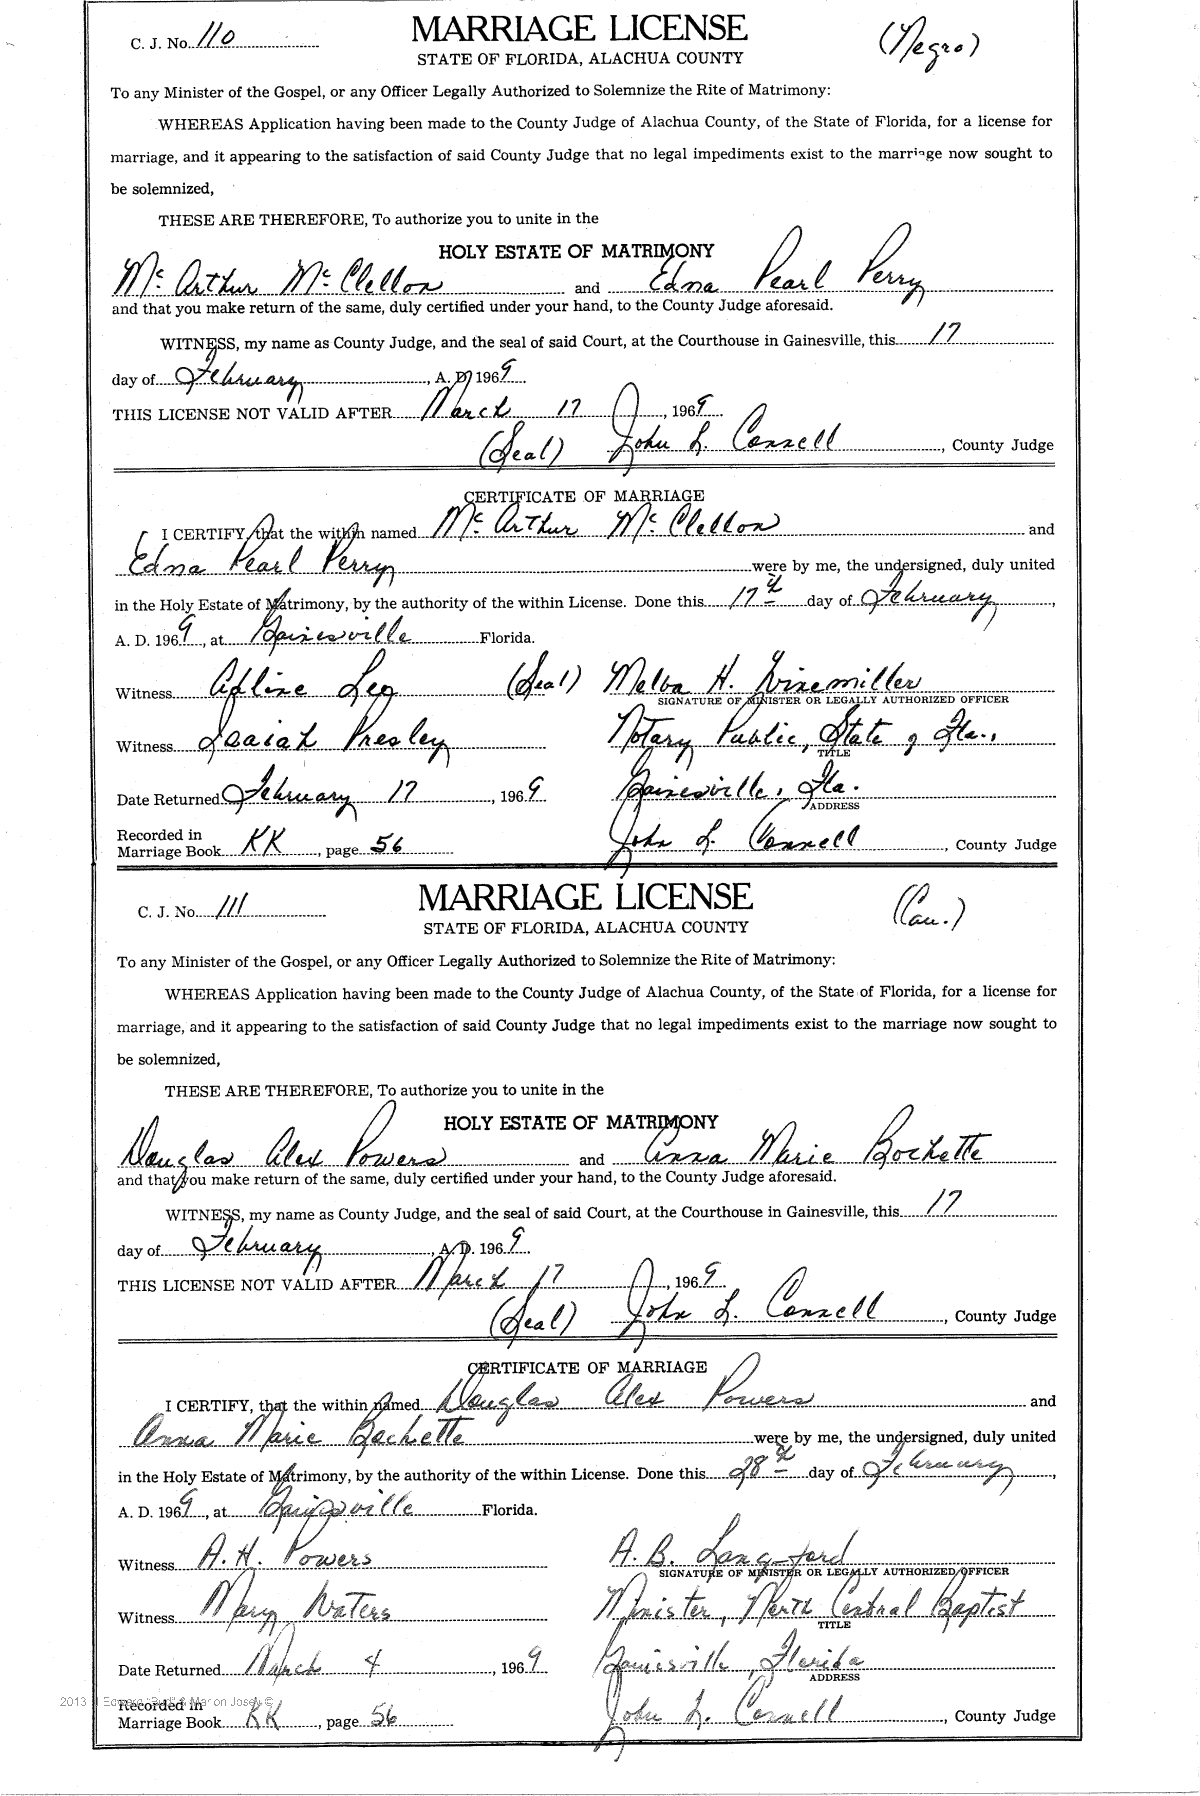 C. J. No. 110 MARRIAGE LICENSE (Negro)
STATE OF FLORIDA, ALACHUA COUNTY
To any Minister of the Gospel, or any Officer Legally Authorized to Solemnize the Rite of Matrimony:
WHEREAS Application having been made to the County Judge of Alachua County, of the State of Florida, for a license for
marriage, and it appearing to the satisfaction of said County Judge that no legal impediments exist to the marriage now sought to
be solemnized,
THESE ARE THEREFORE, To authorize you to unite in the
HOLY ESTATE OF MATRIMONY
Mc Arthur Mc Clellon and Edna Pearl Perry
and that you make return of the same, duly certified under your hand, to the County Judge aforesaid.
WITNESS, my name as County Judge, and the seal of said Court, at the Courthouse in Gainesville, this 17
day of February, A. D. 1969
THIS LICENSE NOT VALID AFTER March 17, 1969
(Seal) John L. Connell, County Judge
CERTIFICATE OF MARRIAGE
I CERTIFY, that the within named Mc Arthur Mc Clellon and
Edna Pearl Perry were by me, the undersigned, duly united
in the Holy Estate of Matrimony, by the authority of the within License. Done this 17th day of February,
A. D. 1969, at Gainesville Florida.
Witness Afline Leg (Seal) Melva H. Winemiller
SIGNATURE OF MINISTER OR LEGALLY AUTHORIZED OFFICER
Witness Isaiah Presley Notary Public, State of Fla.,
TITLE
Date Returned February 17, 1969 Gainesville, Fla.
ADDRESS
Recorded in
Marriage Book KK, page 56 John L. Connell, County Judge
C. J. No. 111 MARRIAGE LICENSE (Cau.)
STATE OF FLORIDA, ALACHUA COUNTY
To any Minister of the Gospel, or any Officer Legally Authorized to Solemnize the Rite of Matrimony:
WHEREAS Application having been made to the County Judge of Alachua County, of the State of Florida, for a license for
marriage, and it appearing to the satisfaction of said County Judge that no legal impediments exist to the marriage now sought to
be solemnized,
THESE ARE THEREFORE, To authorize you to unite in the
HOLY ESTATE OF MATRIMONY
Douglas Alex Powers and Anna Marie Bochette
and that you make return of the same, duly certified under your hand, to the County Judge aforesaid.
WITNESS, my name as County Judge, and the seal of said Court, at the Courthouse in Gainesville, this 17
day of February, A. D. 1969
THIS LICENSE NOT VALID AFTER March 17, 1969
(Seal) John L. Connell, County Judge
CERTIFICATE OF MARRIAGE
I CERTIFY, that the within named Douglas Alex Powers and
Anna Marie Bochette were by me, the undersigned, duly united
in the Holy Estate of Matrimony, by the authority of the within License. Done this 28th day of February,
A. D. 1969, at Gainesville Florida.
Witness A. H. Powers A. B. Langford
SIGNATURE OF MINISTER OR LEGALLY AUTHORIZED OFFICER
Witness Mary Waters Minister, North Central Baptist
TITLE
Date Returned March 4, 1969 Gainesville, Florida
ADDRESS
2013
Recorded in
Marriage Book KK, page 56 John L. Connell, County Judge